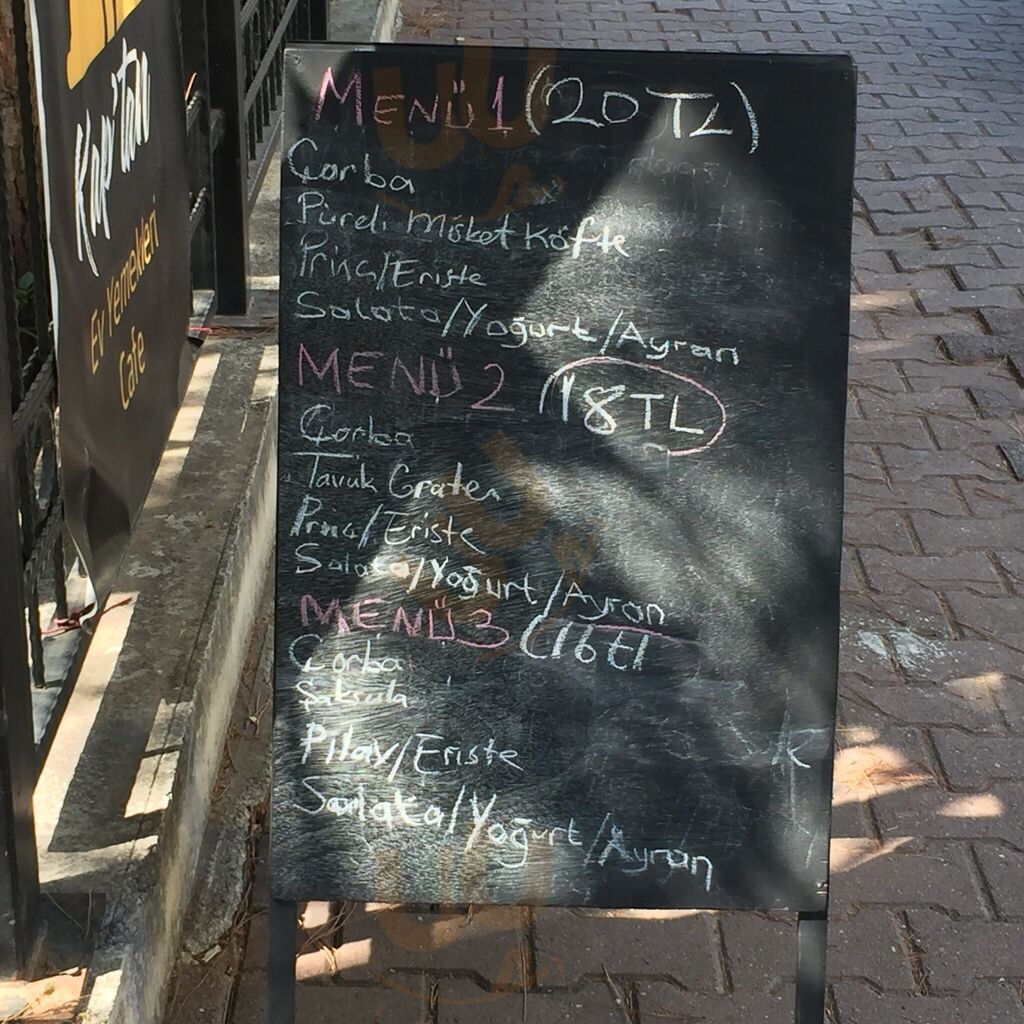 Kap'tan
Ev Yemekleri
Cafe
MENÜ 1 (20 TL)
Çorba
Püreli Misket Köfte
Prinç/Erişte
Salata/Yoğurt/Ayran
MENÜ 2 (18 TL
Çorba
Tavuk Graten
Prinç/Erişte
Salata/Yoğurt/Ayran
MENÜ 3 (16 tl
Çorba
Şakşuka
Pilav/Erişte
Salata/Yoğurt/Ayran